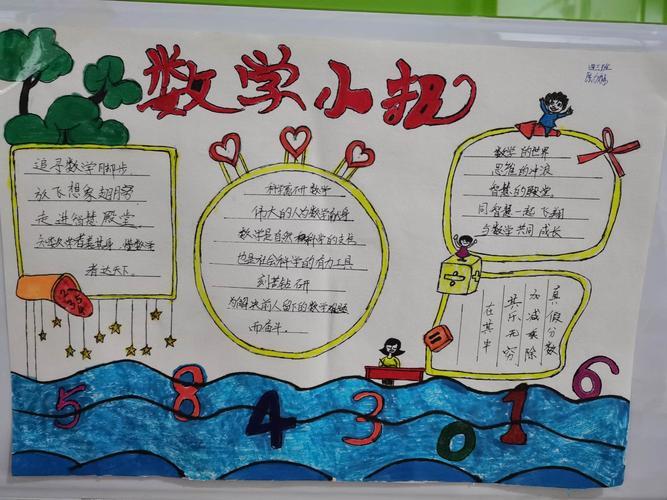 数学小报
追寻数学脚步
放飞想象翅膀
走进智慧殿堂
者达天下.
科技研数学
伟大的人为数学献身
数学是自然科学的支柱
也是社会科学的有力工具
刻苦钻研
为解决前人留下的数学难题
而奋斗.
数学的世界
思维的冲浪
智慧的殿堂
同智慧一起飞翔
与数学共同成长
真假分数
加减乘除
其乐无穷
在其中
2
3 5
÷
=
5 8 4 3 0 1 6